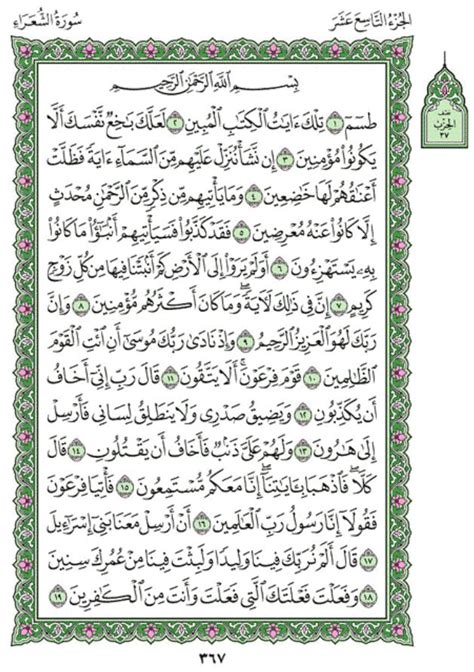 الجزء التاسع عشر
سورة الشعراء
نصف
الحزب
٣٧
بِسْمِ ٱللَّهِ ٱلرَّحْمَٰنِ ٱلرَّحِيمِ
طسٓمٓ ۝١ تِلْكَ ءَايَٰتُ ٱلْكِتَٰبِ ٱلْمُبِينِ ۝٢ لَعَلَّكَ بَٰخِعٌ نَّفْسَكَ أَلَّا
يَكُونُوا۟ مُؤْمِنِينَ ۝٣ إِن نَّشَأْ نُنَزِّلْ عَلَيْهِم مِّنَ ٱلسَّمَآءِ ءَايَةً فَظَلَّتْ
أَعْنَٰقُهُمْ لَهَا خَٰضِعِينَ ۝٤ وَمَا يَأْتِيهِم مِّن ذِكْرٍ مِّنَ ٱلرَّحْمَٰنِ مُحْدَثٍ
إِلَّا كَانُوا۟ عَنْهُ مُعْرِضِينَ ۝٥ فَقَدْ كَذَّبُوا۟ فَسَيَأْتِيهِمْ أَنۢبَٰٓؤُا۟ مَا كَانُوا۟
بِهِۦ يَسْتَهْزِءُونَ ۝٦ أَوَلَمْ يَرَوْا۟ إِلَى ٱلْأَرْضِ كَمْ أَنۢبَتْنَا فِيهَا مِن كُلِّ زَوْجٍ
كَرِيمٍ ۝٧ إِنَّ فِى ذَٰلِكَ لَءَايَةً ۖ وَمَا كَانَ أَكْثَرُهُم مُّؤْمِنِينَ ۝٨ وَإِنَّ
رَبَّكَ لَهُوَ ٱلْعَزِيزُ ٱلرَّحِيمُ ۝٩ وَإِذْ نَادَىٰ رَبُّكَ مُوسَىٰٓ أَنِ ٱئْتِ ٱلْقَوْمَ
ٱلظَّٰلِمِينَ ۝١٠ قَوْمَ فِرْعَوْنَ ۚ أَلَا يَتَّقُونَ ۝١١ قَالَ رَبِّ إِنِّىٓ أَخَافُ
أَن يُكَذِّبُونِ ۝١٢ وَيَضِيقُ صَدْرِى وَلَا يَنطَلِقُ لِسَانِى فَأَرْسِلْ
إِلَىٰ هَٰرُونَ ۝١٣ وَلَهُمْ عَلَىَّ ذَنۢبٌ فَأَخَافُ أَن يَقْتُلُونِ ۝١٤ قَالَ
كَلَّا ۖ فَٱذْهَبَا بِـَٔايَٰتِنَآ ۖ إِنَّا مَعَكُم مُّسْتَمِعُونَ ۝١٥ فَأْتِيَا فِرْعَوْنَ
فَقُولَآ إِنَّا رَسُولُ رَبِّ ٱلْعَٰلَمِينَ ۝١٦ أَنْ أَرْسِلْ مَعَنَا بَنِىٓ إِسْرَٰٓءِيلَ
۝١٧ قَالَ أَلَمْ نُرَبِّكَ فِينَا وَلِيدًا وَلَبِثْتَ فِينَا مِنْ عُمُرِكَ سِنِينَ
۝١٨ وَفَعَلْتَ فَعْلَتَكَ ٱلَّتِى فَعَلْتَ وَأَنتَ مِنَ ٱلْكَٰفِرِينَ ۝١٩
٣٦٧